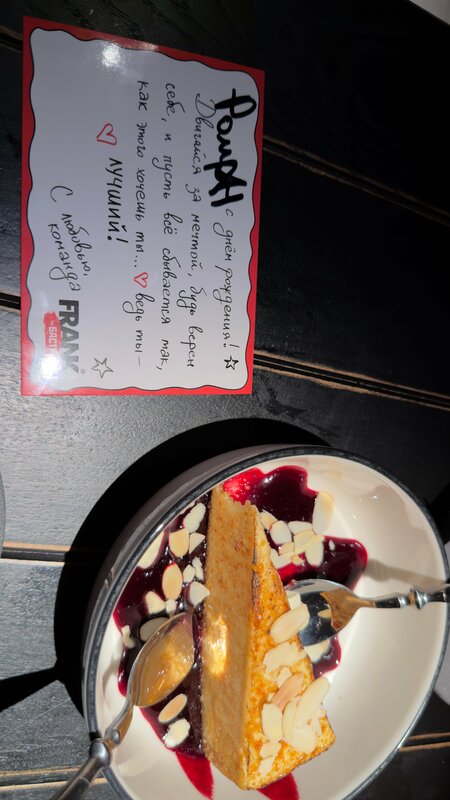 с днём рождения! ☆
Двигайся за мечтой, будь верен
себе, и пусть всё сбывается так,
как этого хочешь ты... ♡ ведь ты –
♡ ЛУЧШИЙ!
С любовью,
команда FRANK